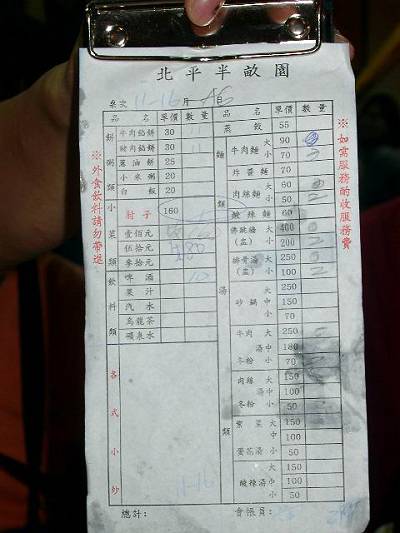 北平半畝園
桌次 11-16 月 日
品名 單價 數量
餅粥類
牛肉餡餅 30 11
豬肉餡餅 30 11
蔥油餅 25
小米粥 20
白飯 20
小菜類
肘子 160
壹佰元
伍拾元
參拾元
飲料類
啤酒
果汁
汽水
烏龍茶
礦泉水
各式小炒
11-16
總計:
品名 單價 數量
蒸餃 55
麵類
牛肉麵 大 90
小 70
炸醬麵
肉絲麵 大 60
小 50
酸辣麵 60
湯類
佛跳牆(盅) 大 400
小 200
排骨湯(盅) 大 250
小 100
砂鍋 大 250
中 150
小 70
牛肉湯冬粉 大 250
中 180
小 70
肉絲湯冬粉 大 150
中 100
小 50
紫菜蛋花湯 大 150
中 100
小 50
酸辣湯 大 150
中 100
小 50
會帳員:
※外食飲料請勿帶進
※如需服務酌收服務費